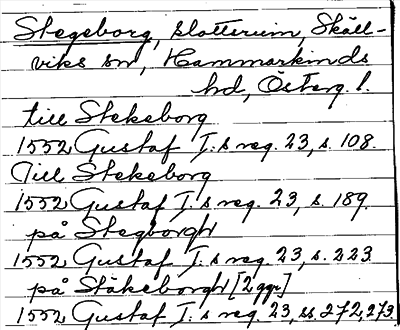 Stegeborg, slottsruin, Skäll-
viks sn, Hammarkinds
hd, Österg. l.
till Stekeborg
1552 Gustaf I:s reg. 23, s. 108.
Till Stekeborg
1552 Gustaf I:s reg. 23, s. 189.
på Stegborgh
1552 Gustaf I:s reg. 23, s. 223
på Stäkeborgh [2 ggr]
1552 Gustaf I:s reg. 23, ss 272, 273.